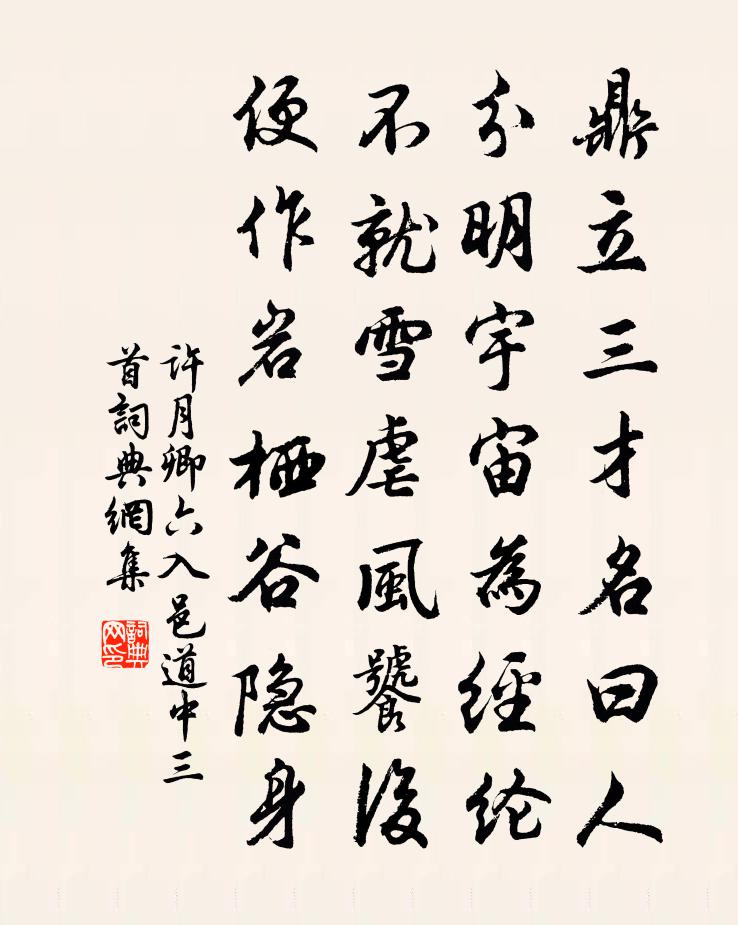 鼎立三才名曰人
分明宇宙為經纶
不就雪虐風饕後
便作岩栖谷隐身
許月卿六入邑道中三
首詞典網集
詞典
网印